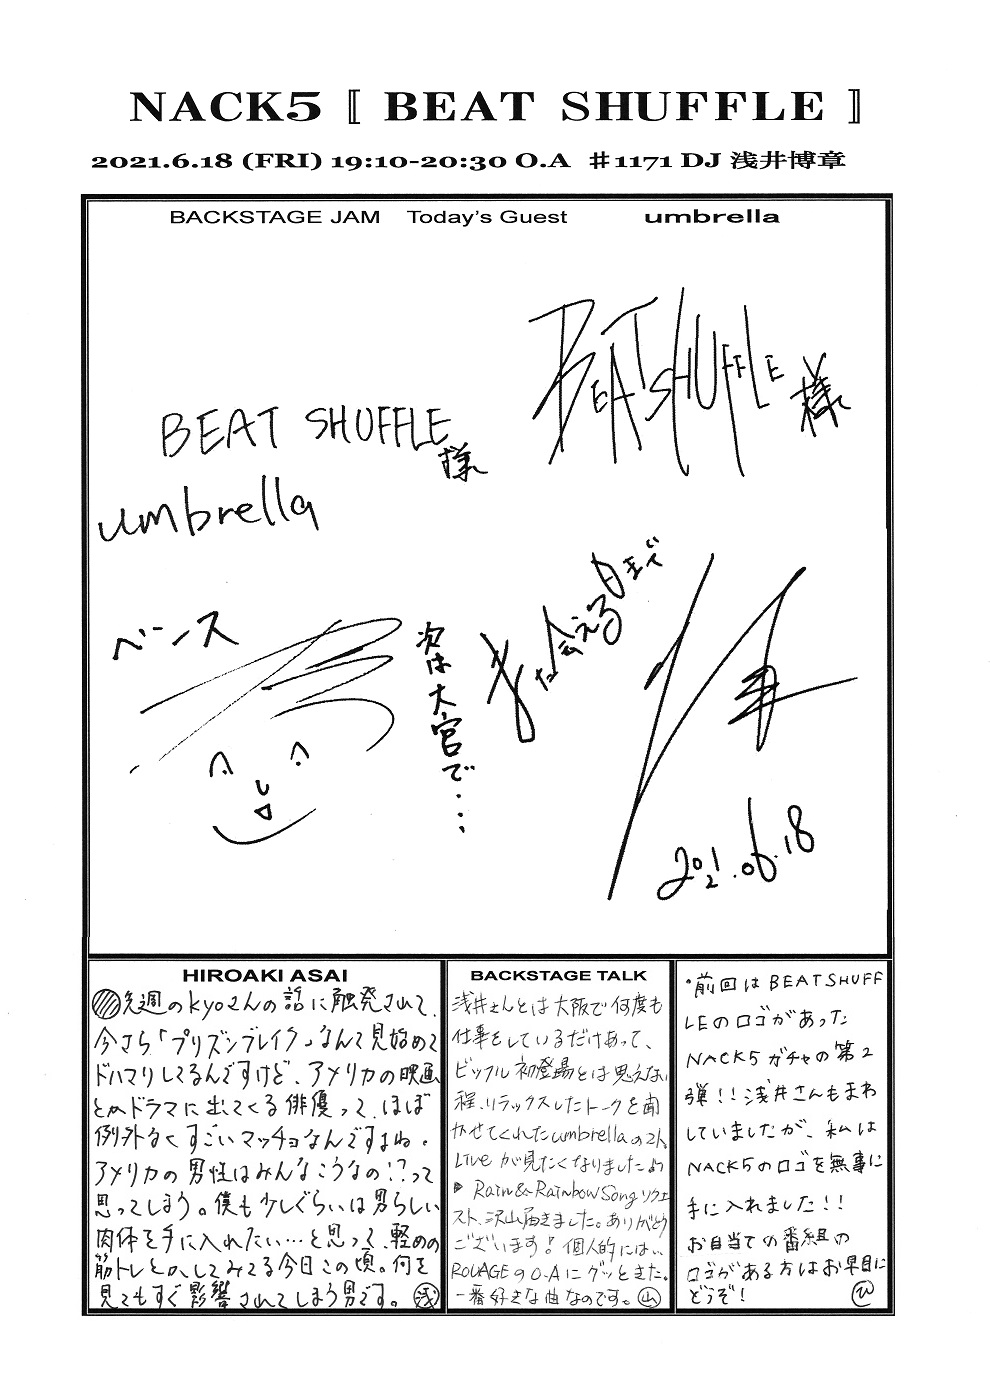 NACK5 〚 BEAT SHUFFLE 〛
2021.6.18 (FRI) 19:10-20:30 O.A ♯1171 DJ 浅井博章
BACKSTAGE JAM Today's Guest umbrella
BEATSHUFFLE 様
BEAT SHUFFLE
様
umbrella
また会える日まで
ベース
次は大宮で・・・
2021.06.18
HIROAKI ASAI
先週のkyoさんの話に触発されて、
今さら「プリズンブレイク」なんて見始めて
ドハマリしてるんですけど、アメリカの映画
とかドラマに出てくる俳優って、ほぼ
例外なくすごいマッチョなんですよね。
アメリカの男性はみんなこうなの!?って
思ってしまう。僕も少しぐらいは男らしい
肉体を手に入れたい…と思って、軽めの
筋トレとかしてみてる今日この頃。何を
見てもすぐ影響されてしまう男です。 浅
BACKSTAGE TALK
浅井さんとは大阪で何度も
仕事をしているだけあって、
ビッフル初登場とは思えない
程、リラックスしたトークを聞
かせてくれたumbrellaの2人。
Liveが見たくなりましたよ
Rain&RainbowSongリクエ
スト、沢山届きました。ありがとう
ございます! 個人的には、
ROUAGEのO.Aにグッときた。
一番好きな曲なのです。 山
・前回はBEATSHUFF
LEのロゴがあった
NACK5ガチャの第2
弾!!浅井さんもまわ
していましたが、私は
NACK5のロゴを無事に
手に入れました!!
お目当ての番組の
ロゴがある方はお早目に
どうぞ! ひ